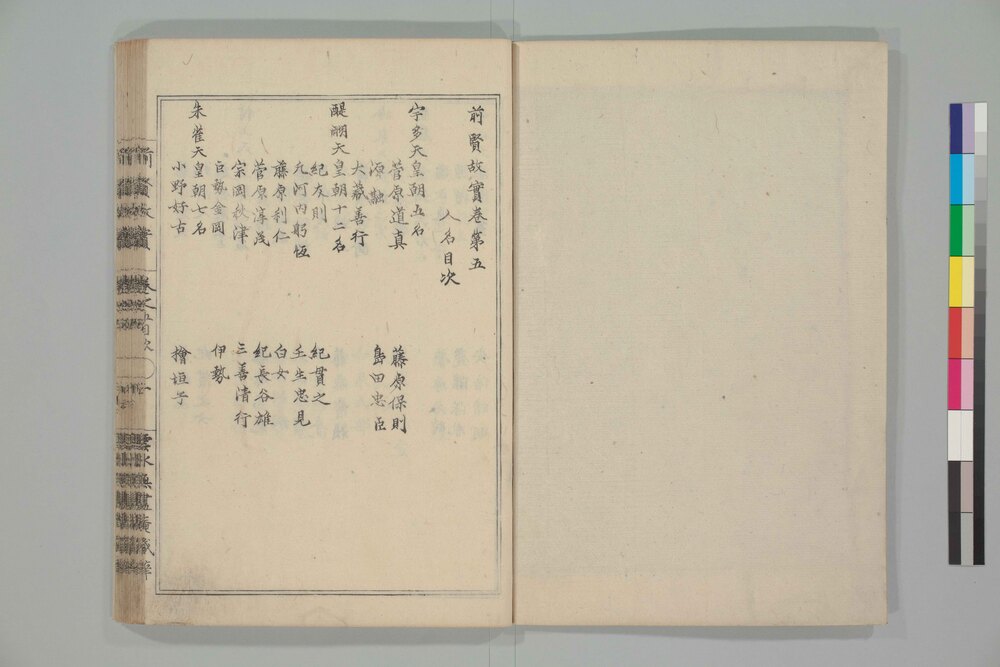 前賢故實巻第五
人名目次
宇多天皇朝五名
菅原道真
藤原保則
源融
島田忠臣
大蔵善行
醍醐天皇朝十二名
紀友則
紀貫之
凡河内躬恒
壬生忠見
藤原利仁
白女
菅原淳茂
紀長谷雄
宗岡秋津
三善清行
巨勢金岡
伊勢
朱雀天皇朝七名
小野好古
檜垣子